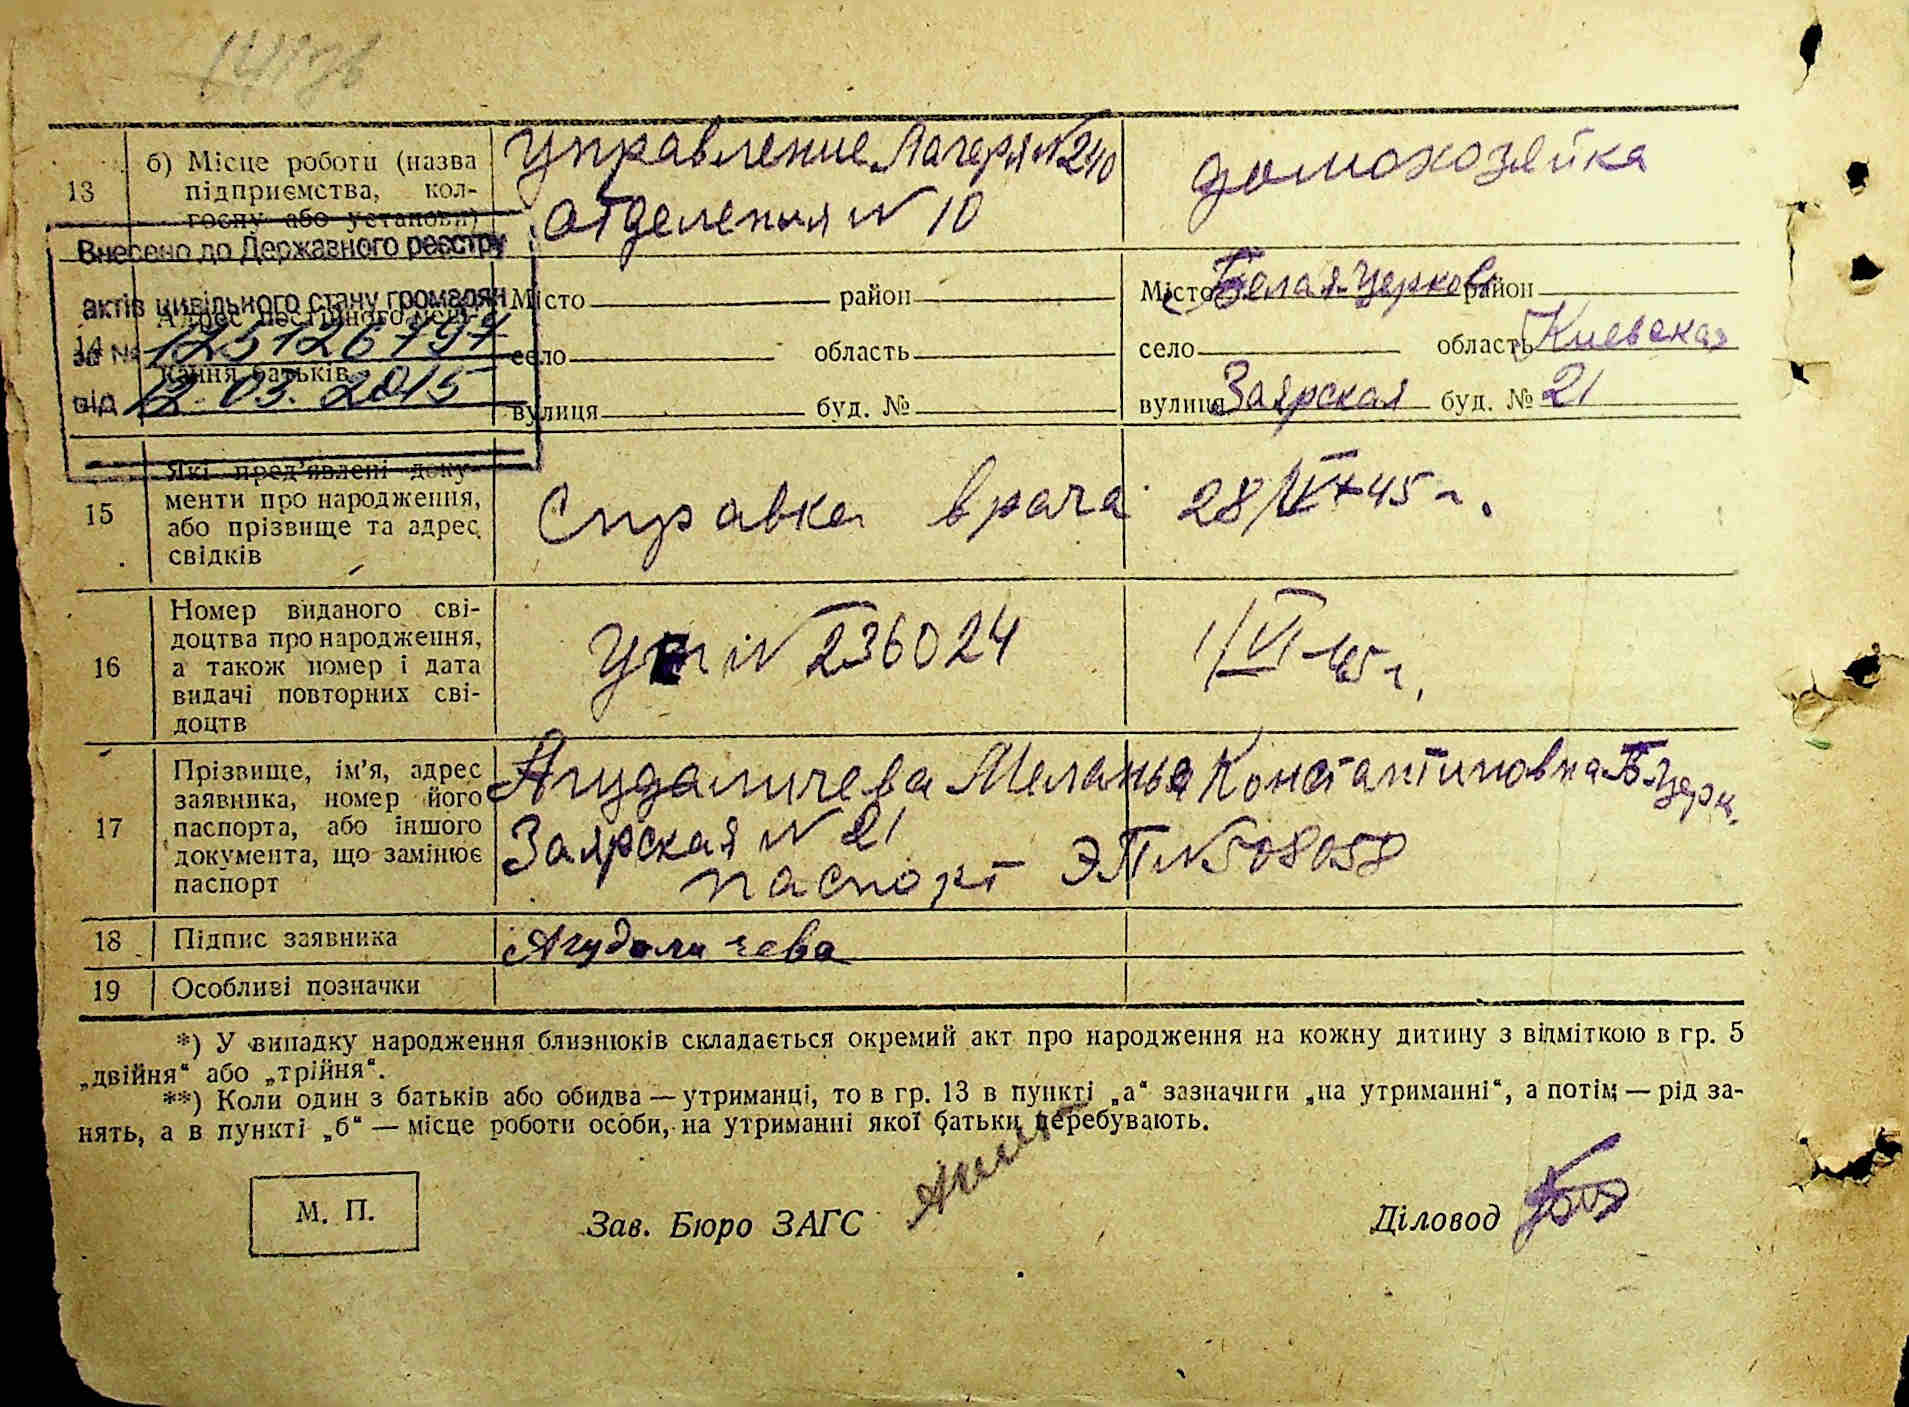 13
б) Місце роботи (назва
підприємства, кол-
госпу або установи)
Управление Лагеря №240
отделения №10
домохозяйка
Внесено до Державного реєстру
актів цивільного стану громадян
за № 125126797
від 12.03.2015
14
Адрес постійного
кання батьків
Місто район
село область
вулиця буд. №
Місто Белая-Церковь район
село область Киевская
вулиця Заярская буд. № 21
15
Які пред’явлені доку-
менти про народження,
або прізвище та адрес
свідків
Справка врача 28/IV-45 г.
16
Номер виданого сві-
доцтва про народження,
а також номер і дата
видачі повторних сві-
доцтв
№ 236024
1/VI-45 г.
17
Прізвище, ім’я, адрес
заявника, номер його
паспорта, або іншого
документа, що замінює
паспорт
Агудаличева Меланья Константиновна Б-Церк.
Заярская № 21
паспорт ЭП №508058
18
Підпис заявника
Агудаличева
19
Особливі позначки
*) У випадку народження близнюків складається окремий акт про народження на кожну дитину з відміткою в гр. 5
„двійня“ або „трійня“.
**) Коли один з батьків або обидва — утриманці, то в гр. 13 в пункті „а“ зазначити „на утриманні“, а потім — рід за-
нять, а в пункті „б“ — місце роботи особи, на утриманні якої батьки перебувають.
М. П.
Зав. Бюро ЗАГС
Діловод